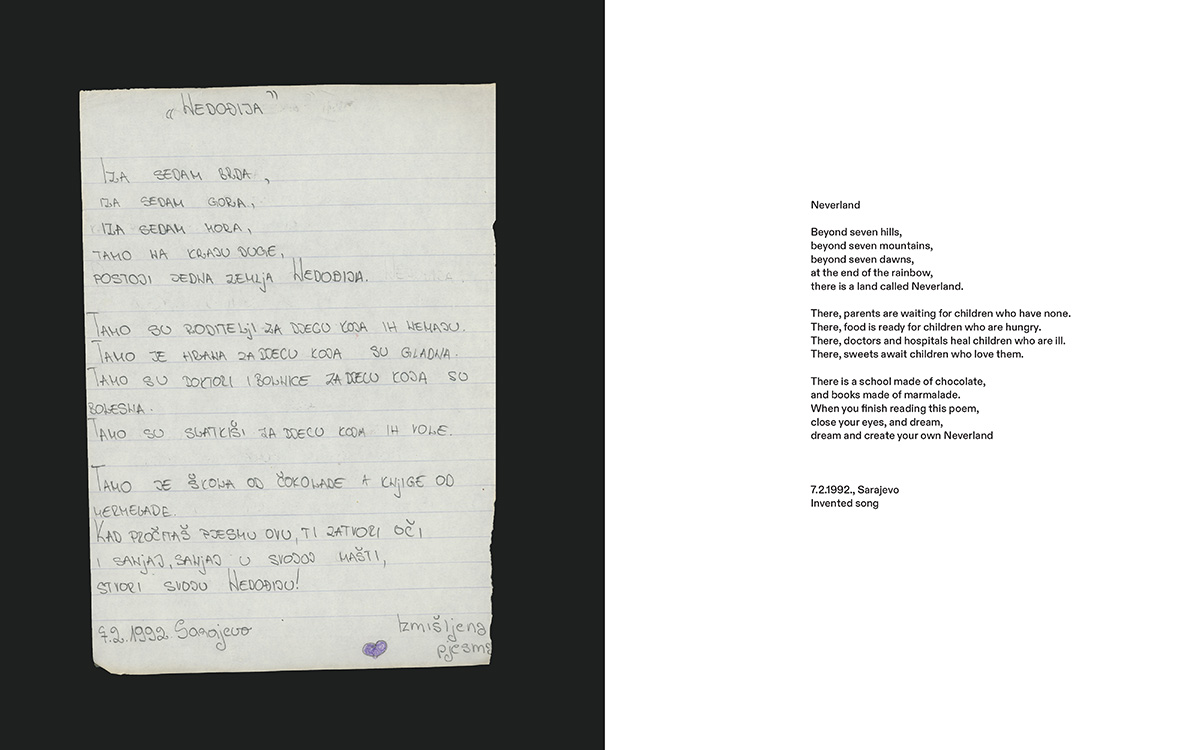 „NEDOĐIJA”
IZA SEDAM BRDA,
IZA SEDAM GORA,
IZA SEDAM MORA,
TAMO NA KRAJU DUGE,
POSTOJI JEDNA ZEMLJA NEDOĐIJA.
TAMO SU RODITELJI ZA DJECU KOJA IH NEMAJU.
TAMO JE HRANA ZA DJECU KOJA SU GLADNA.
TAMO SU DOKTORI I BOLNICE ZA DJECU KOJA SU
BOLESNA.
TAMO SU SLATKIŠI ZA DJECU KOJA IH VOLE.
TAMO JE ŠKOLA OD ČOKOLADE A KNJIGE OD
MERMELADE.
KAD PROČITAŠ PJESMU OVU, TI ZATVORI OČI
I SANJAJ, SANJAJ U SVOJOJ MAŠTI,
STVORI SVOJU NEDOĐIJU!
7.2.1992 Sarajevo
Izmišljena
pjesma
Neverland
Beyond seven hills,
beyond seven mountains,
beyond seven dawns,
at the end of the rainbow,
there is a land called Neverland.
There, parents are waiting for children who have none.
There, food is ready for children who are hungry.
There, doctors and hospitals heal children who are ill.
There, sweets await children who love them.
There is a school made of chocolate,
and books made of marmalade.
When you finish reading this poem,
close your eyes, and dream,
dream and create your own Neverland
7.2.1992., Sarajevo
Invented song